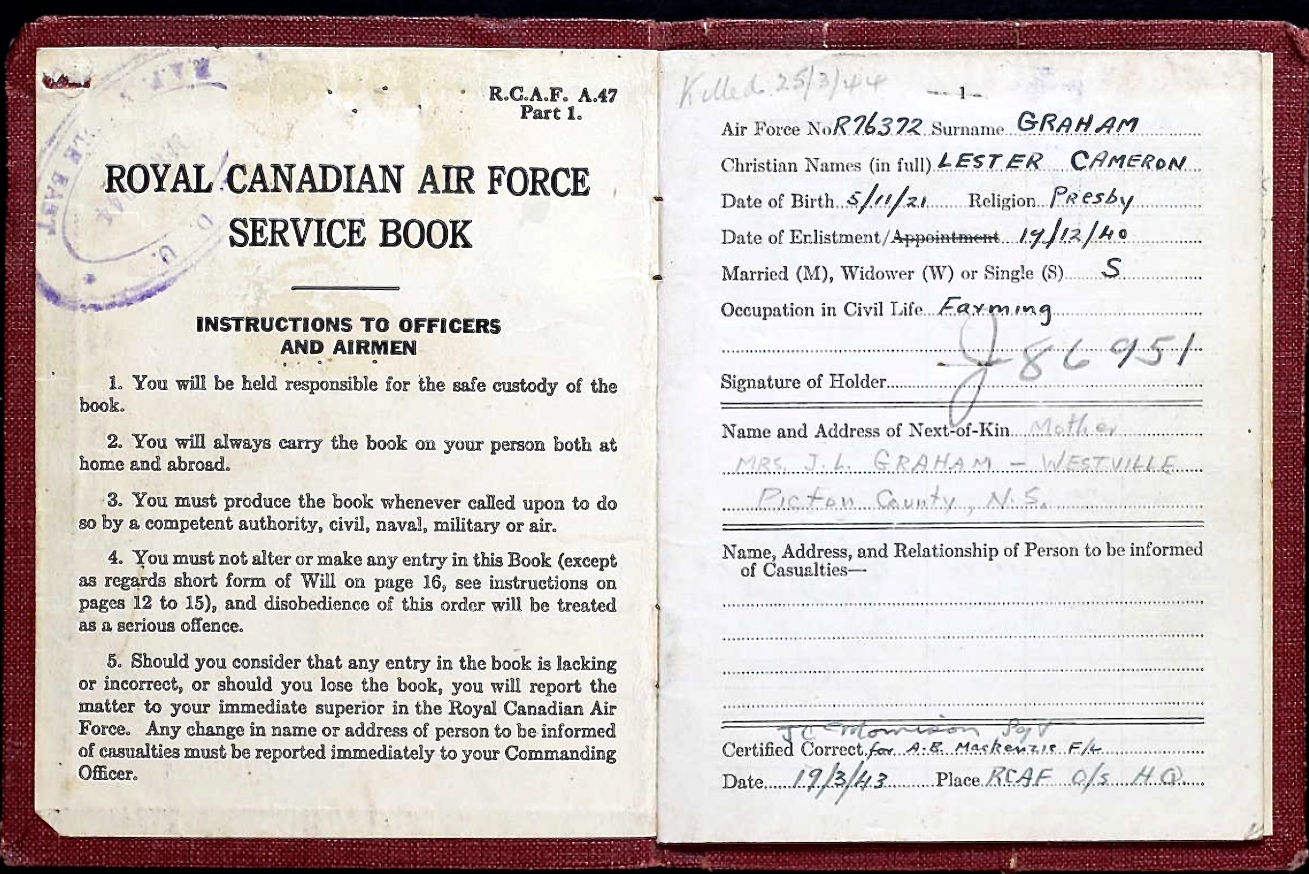 R.C.A.F. A.47
Part 1.
ROYAL CANADIAN AIR FORCE
SERVICE BOOK
INSTRUCTIONS TO OFFICERS
AND AIRMEN
1. You will be held responsible for the safe custody of the
book.
2. You will always carry the book on your person both at
home and abroad.
3. You must produce the book whenever called upon to do
so by a competent authority, civil, naval, military or air.
4. You must not alter or make any entry in this Book (except
as regards short form of Will on page 16, see instructions on
pages 12 to 15), and disobedience of this order will be treated
as a serious offence.
5. Should you consider that any entry in the book is lacking
or incorrect, or should you lose the book, you will report the
matter to your immediate superior in the Royal Canadian Air
Force. Any change in name or address of person to be informed
of casualties must be reported immediately to your Commanding
Officer.
EAST
Killed 25/3/44
— 1 —
Air Force No R76372 Surname GRAHAM
Christian Names (in full) LESTER CAMERON
Date of Birth 5/11/21 Religion Presby
Date of Enlistment/Appointment 19/12/40
Married (M), Widower (W) or Single (S) S
Occupation in Civil Life Farming
J86951
Signature of Holder
Name and Address of Next-of-Kin Mother
MRS. J.L. GRAHAM – WESTVILLE
Picton County, N.S.
Name, Address, and Relationship of Person to be informed
of Casualties—
Morrison Sgt
Certified Correct for A.B. MacKenzie F/L
Date 19/3/43 Place RCAF O/S HQ